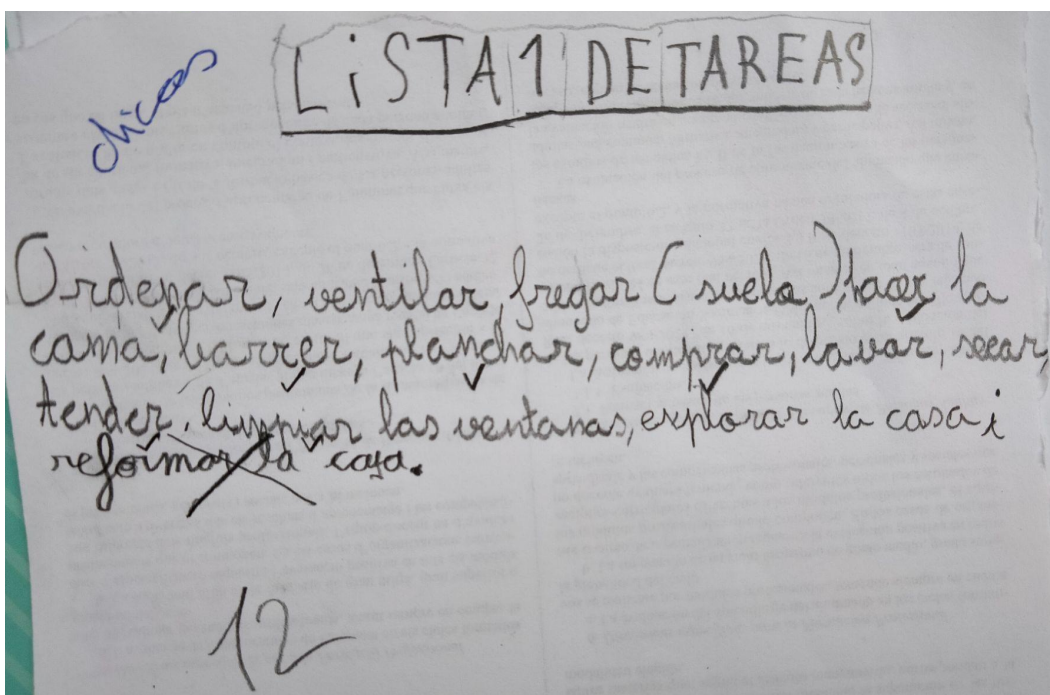 chicas
LiSTA 1 DE TAREAS
Ordenar, ventilar, fregar (suelo), hacer la
cama, barrer, planchar, comprar, lavar, secar,
tender, limpiar las ventanas, explorar la casa i
reformar la casa.
12